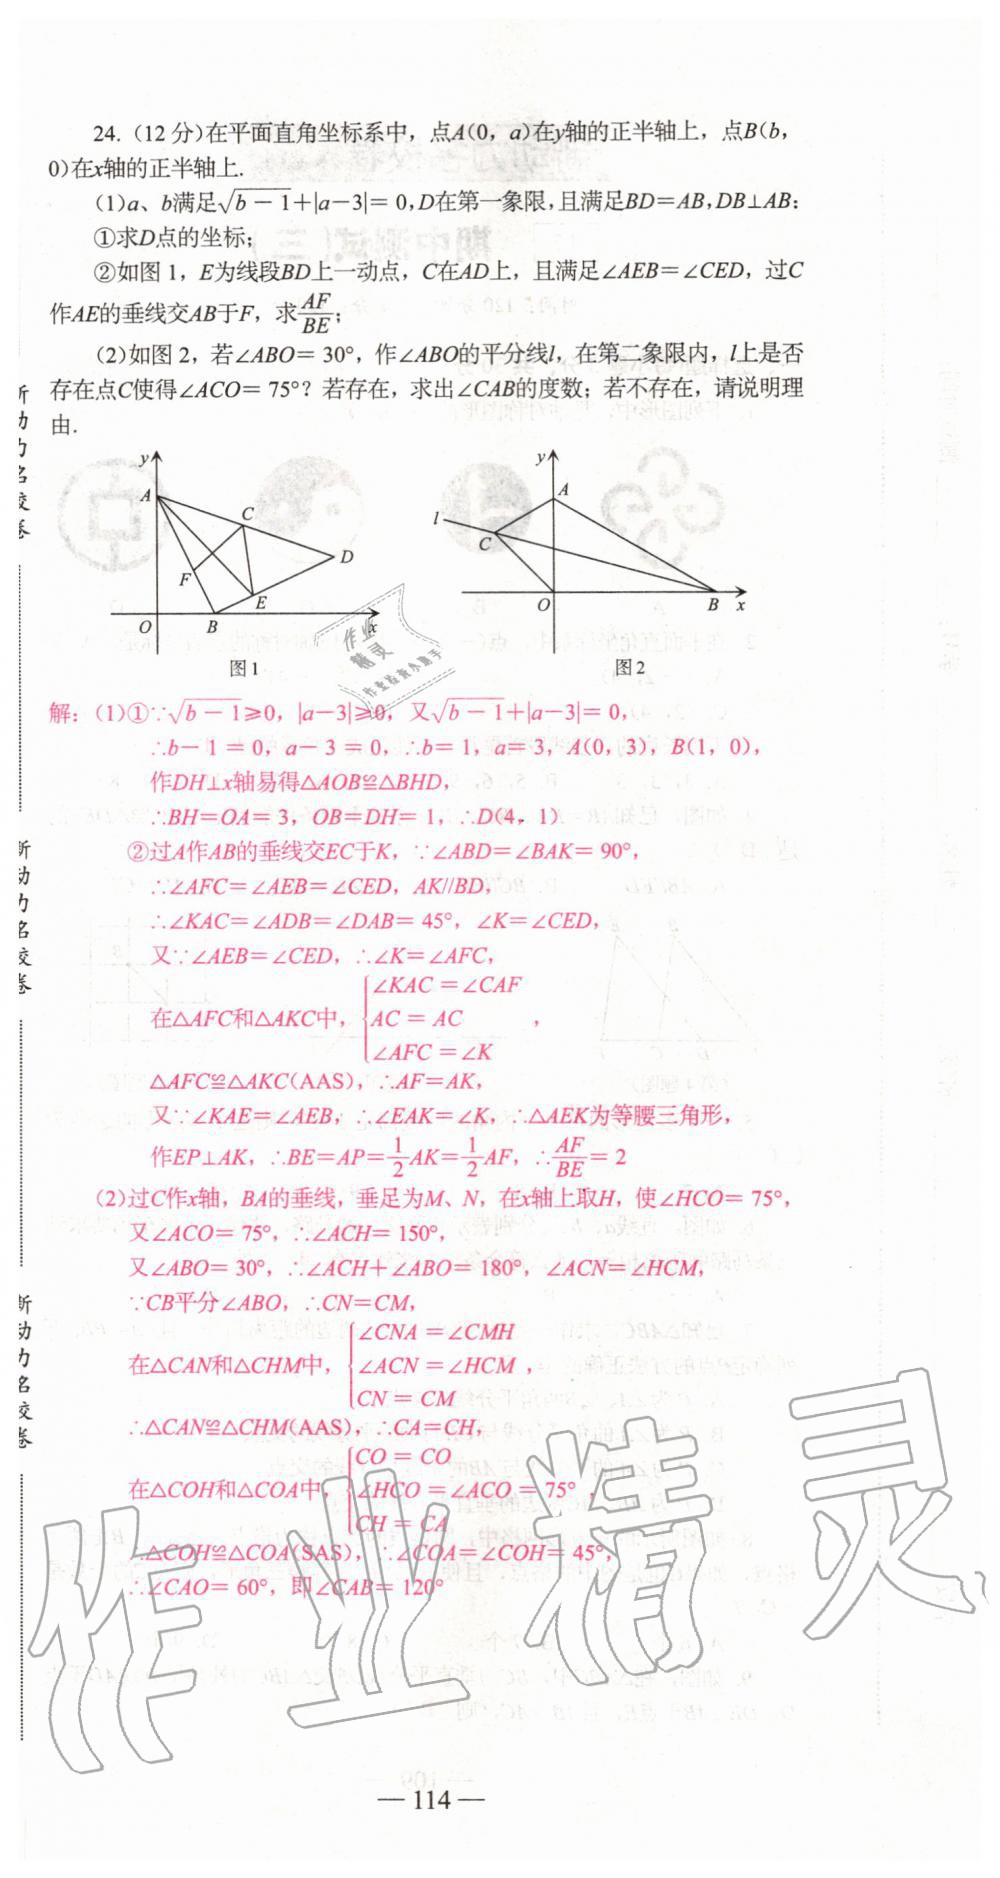 24. (12 分)在平面直角坐标系中，点A(0，a)在y轴的正半轴上，点B(b，
0)在x轴的正半轴上.
(1)a、b满足√(b－1)+|a－3|＝0，D在第一象限，且满足BD＝AB，DB⊥AB：
①求D点的坐标；
②如图 1，E为线段BD上一动点，C在AD上，且满足∠AEB＝∠CED，过C
作AE的垂线交AB于F，求AF/BE；
(2)如图 2，若∠ABO＝30°，作∠ABO的平分线l，在第二象限内，l上是否
存在点C使得∠ACO＝75°？若存在，求出∠CAB的度数；若不存在，请说明理
由.
y
A
C
D
F
E
O
B
x
图 1
y
A
l
C
O
B
x
图 2
解：(1)①∵√(b－1)≥0，|a－3|≥0，又√(b－1)+|a－3|＝0，
∴b－1＝0，a－3＝0，∴b＝1，a＝3，A(0，3)，B(1，0)，
作DH⊥x轴易得△AOB≌△BHD，
∴BH＝OA＝3，OB＝DH＝1，∴D(4，1)
②过A作AB的垂线交EC于K，∵∠ABD＝∠BAK＝90°，
∴∠AFC＝∠AEB＝∠CED，AK//BD，
∴∠KAC＝∠ADB＝∠DAB＝45°，∠K＝∠CED，
又∵∠AEB＝∠CED，∴∠K＝∠AFC，
在△AFC和△AKC中，{∠KAC＝∠CAF
AC＝AC，
∠AFC＝∠K
△AFC≌△AKC(AAS)，∴AF＝AK，
又∵∠KAE＝∠AEB，∴∠EAK＝∠K，∴△AEK为等腰三角形，
作EP⊥AK，∴BE＝AP＝1/2AK＝1/2AF，∴AF/BE＝2
(2)过C作x轴，BA的垂线，垂足为M、N，在x轴上取H，使∠HCO＝75°，
又∠ACO＝75°，∴∠ACH＝150°，
又∠ABO＝30°，∴∠ACH＋∠ABO＝180°，∠ACN＝∠HCM，
∵CB平分∠ABO，∴CN＝CM，
在△CAN和△CHM中，{∠CNA＝∠CMH
∠ACN＝∠HCM，
CN＝CM
∴△CAN≌△CHM(AAS)，∴CA＝CH，
在△COH和△COA中，{CO＝CO
∠HCO＝∠ACO＝75°，
CH＝CA
∴△COH≌△COA(SAS)，∴∠COA＝∠COH＝45°，
∴∠CAO＝60°，即∠CAB＝120°
— 114 —
新动力名校卷
新动力名校卷
新动力名校卷
作业精灵
作业
精灵
作业检查小助手